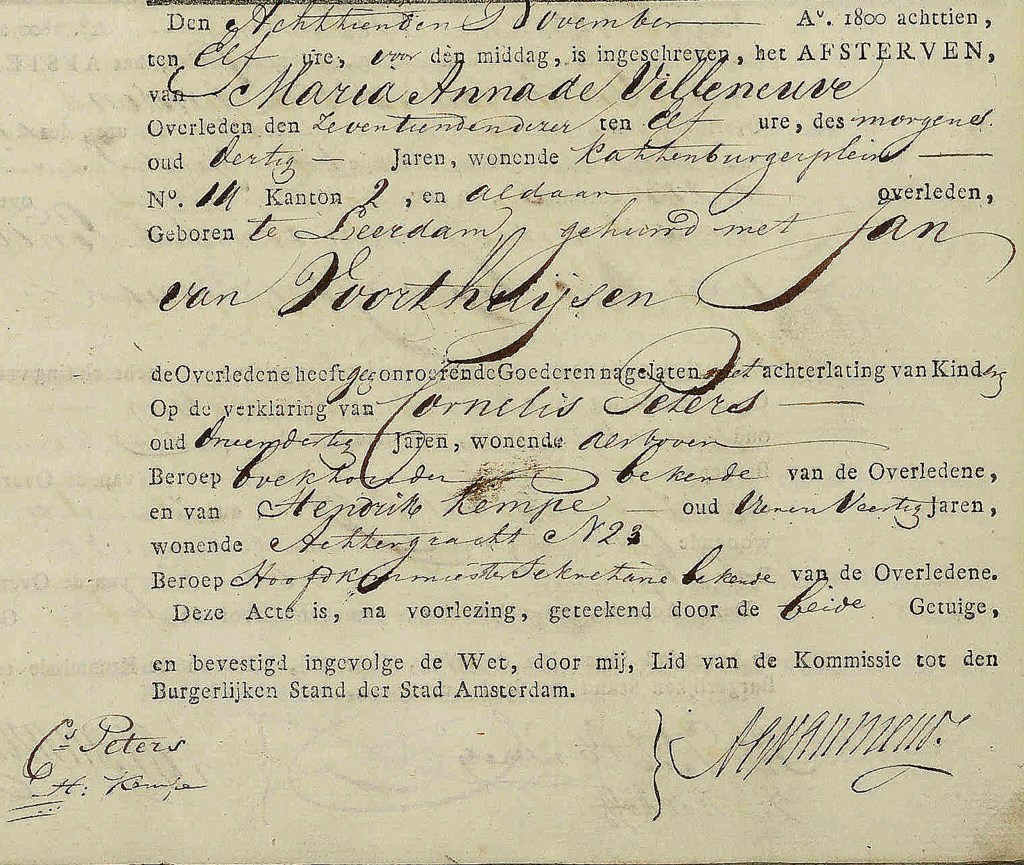 Den Achttienden November A°. 1800 achttien,
ten Elf ure, voor den middag, is ingeschreven, het AFSTERVEN,
van Maria Anna de Villeneuve
Overleden den Zeventiendendezer ten Elf ure, des morgens
oud dertig Jaren, wonende Kattenburgerplein
N°. Kanton 2, en aldaar overleden,
Geboren te Leerdam gehuwd met Jan
van Voorthuijsen
de Overledene heeft geen onroerende Goederen nagelaten met achterlating van Kind
Op de verklaring van Cornelis Peters
oud drieendertig Jaren, wonende alsboven
Beroep boekhouder bekende van de Overledene,
en van Hendrik Kempe oud Vieren Veertig Jaren,
wonende Achtergracht N 23
Beroep Hoofdkommies ter Sekretarie bekende van de Overledene.
Deze Acte is, na voorlezing, geteekend door de beide Getuige,
en bevestigd ingevolge de Wet, door mij, Lid van de Kommissie tot den
Burgerlijken Stand der Stad Amsterdam.
Cs Peters
H: Kempe